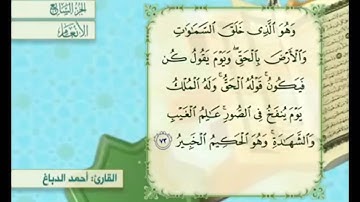 الجزء السابع
الأنعام
وَهُوَ ٱلَّذِى خَلَقَ ٱلسَّمَٰوَٰتِ
وَٱلْأَرْضَ بِٱلْحَقِّ ۖ وَيَوْمَ يَقُولُ كُن
فَيَكُونُ ۚ قَوْلُهُ ٱلْحَقُّ ۚ وَلَهُ ٱلْمُلْكُ
يَوْمَ يُنفَخُ فِى ٱلصُّورِ ۚ عَٰلِمُ ٱلْغَيْبِ
وَٱلشَّهَٰدَةِ ۚ وَهُوَ ٱلْحَكِيمُ ٱلْخَبِيرُ ٧٣
القارئ: أحمد الدباغ